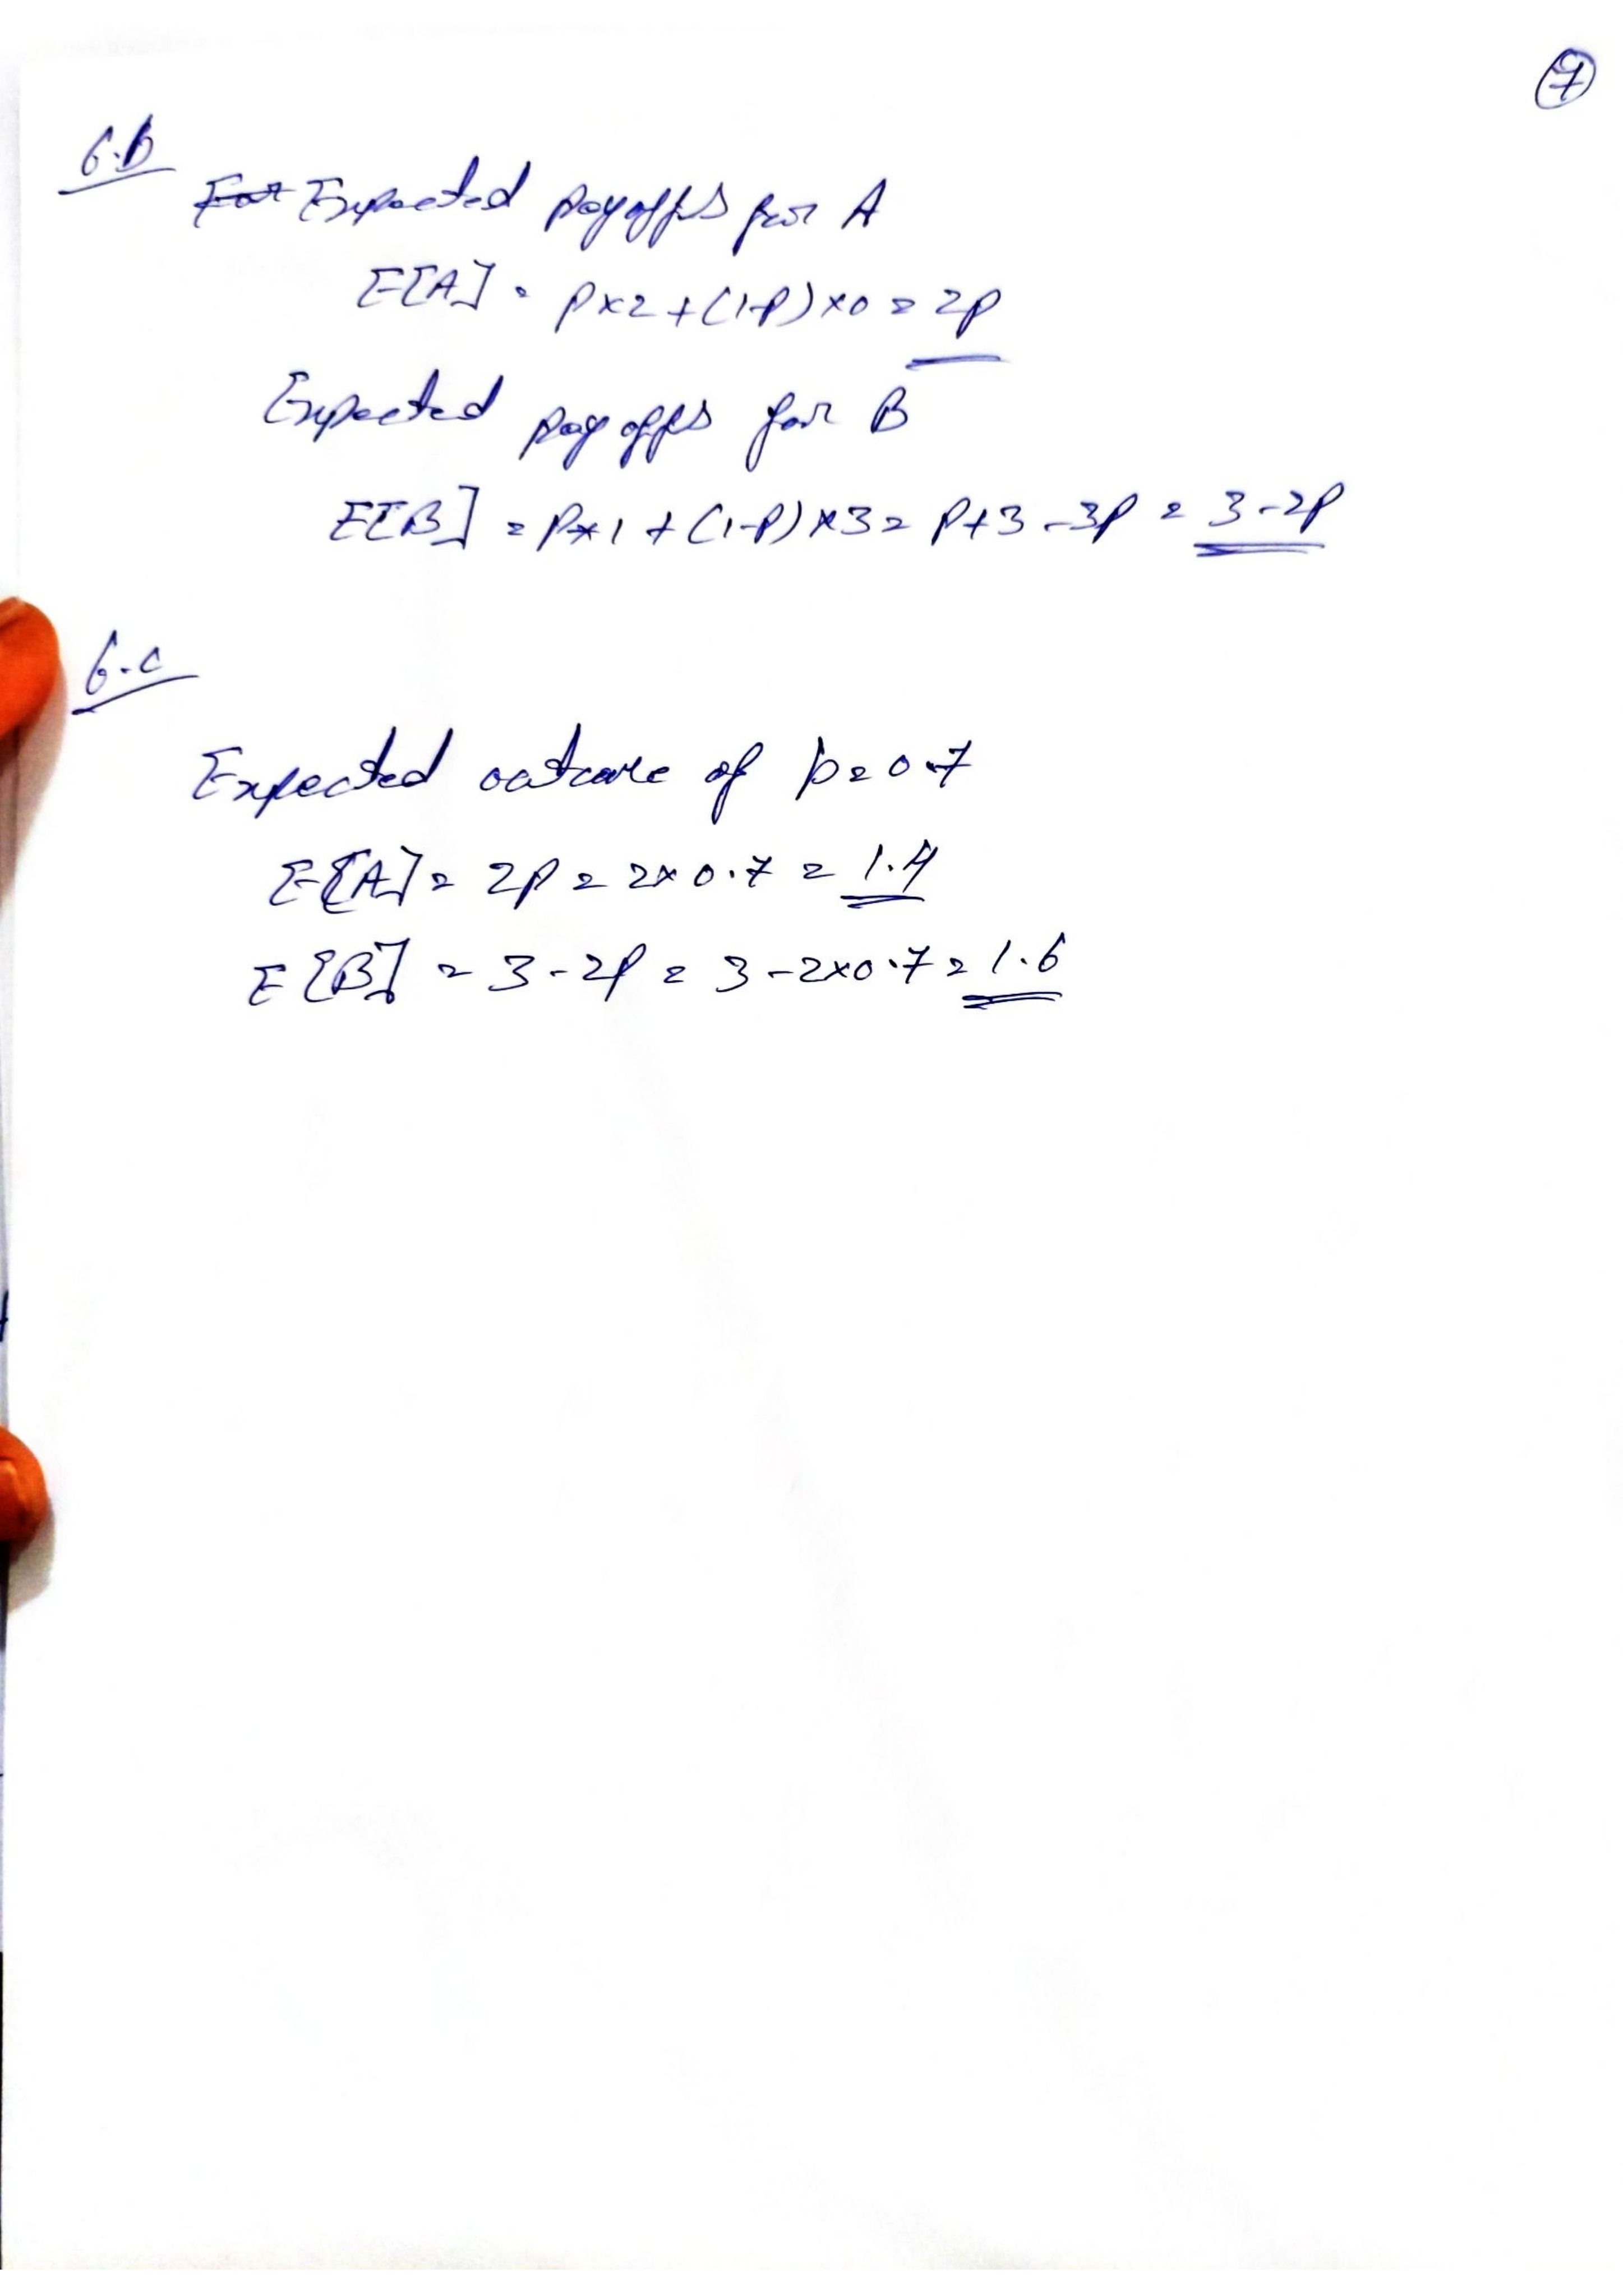 7
6.b
For Expected payoffs for A
E[A] = p×2+(1-p)×0 = 2p
Expected payoffs for B
E[B] = p×1 + (1-p)×3 = p+3-3p = 3-2p
6.c
Expected outcome of p=0.7
E[A] = 2p = 2×0.7 = 1.4
E[B] = 3-2p = 3-2×0.7 = 1.6